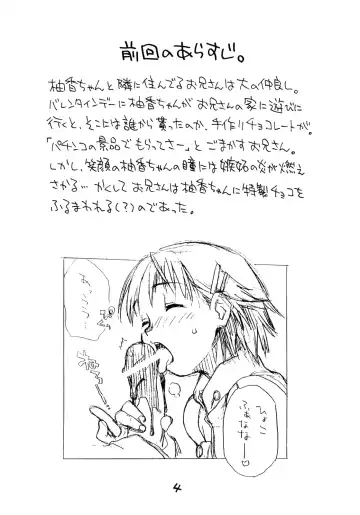 前回のあらすじ。
柚香ちゃんと隣に住んでるお兄さんは大の仲良し。
バレンタインデーに柚香ちゃんがお兄さんの家に遊びに
行くと、そこには誰から貰ったのか、手作りチョコレートが。
「パチンコの景品でもらってさー」とごまかすお兄さん。
しかし、笑顔の柚香ちゃんの瞳には嫉妬の炎が燃え
さかる…かくしてお兄さんは柚香ちゃんに特製チョコを
ふるまわれる(?)のであった。
4